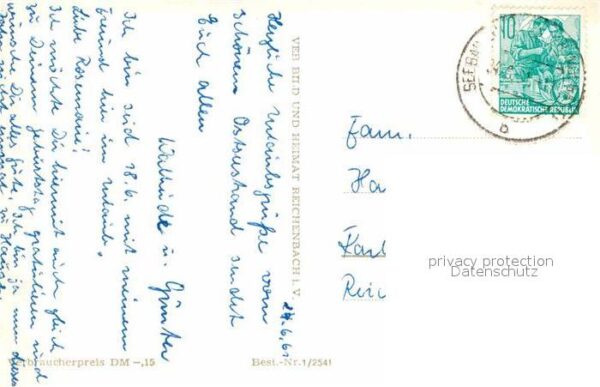 Herzliche Urlaubsgrüße vom
schönen Ostseestrand sendet
Euch allen
Günter
24.6.61
Ich bin seid 18.6. mit meinem
Freund hier im Urlaub.
Liebe Rosemarie!
Ich möchte Dir hiermit auch gleich
zu Deinem Geburtstag gratulieren und
wünsche Dir alles Gute. Ich bin ja
VEB BILD UND HEIMAT REICHENBACH i. V.
Verbraucherpreis DM -,15
Best.-Nr. 1/2541
10
DEUTSCHE
DEMOKRATISCHE REPUBLIK
SEEBA
b
Fam.
Ha
Karl
Reic
privacy protection
Datenschutz